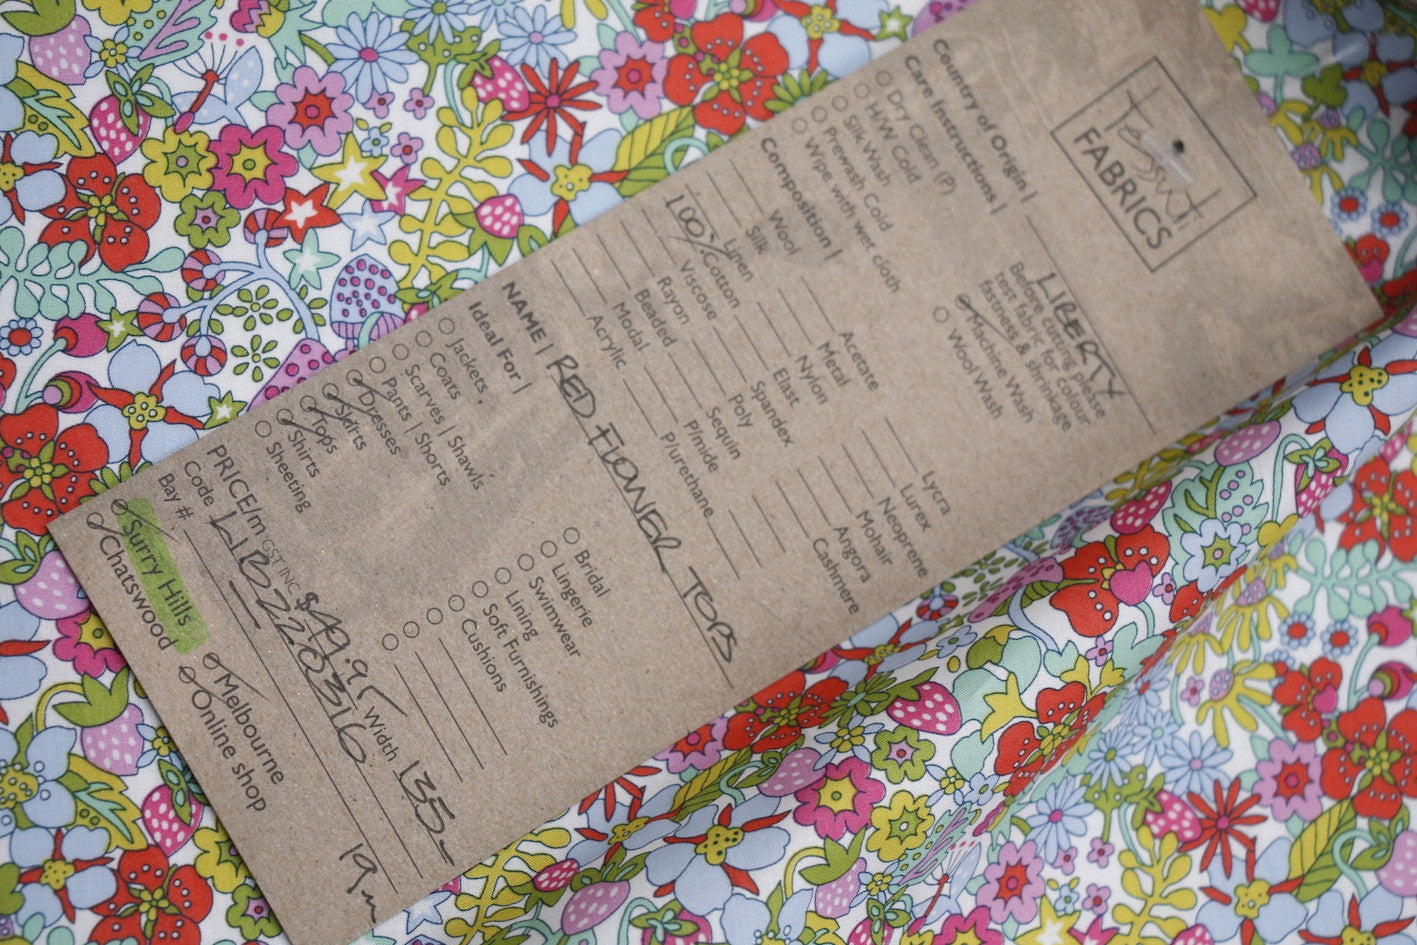 Tessuti
FABRICS
Country of Origin | LIBERTY
Care Instructions |
Before cutting please
test fabric for colour
fastness & shrinkage
Dry Clean (P)
H/W Cold
Silk Wash
Prewash Cold
Wipe with wet cloth
Machine Wash
Wool Wash
Composition |
Wool
Silk
Linen
100% Cotton
Viscose
Rayon
Beaded
Modal
Acrylic
Acetate
Metal
Nylon
Elast
Spandex
Poly
Sequin
P/mide
P/urethane
Lycra
Lurex
Neoprene
Mohair
Angora
Cashmere
NAME | RED FLOWER TOPS
Ideal For |
Jackets
Coats
Scarves | Shawls
Pants | Shorts
Dresses
Skirts
Tops
Shirts
Sheeting
Bridal
Lingerie
Swimwear
Lining
Soft Furnishings
Cushions
PRICE/m GST INC $49.95 Width 135-
Code LIB2220316
Bay #
19m
Surry Hills
Chatswood
Melbourne
Online shop